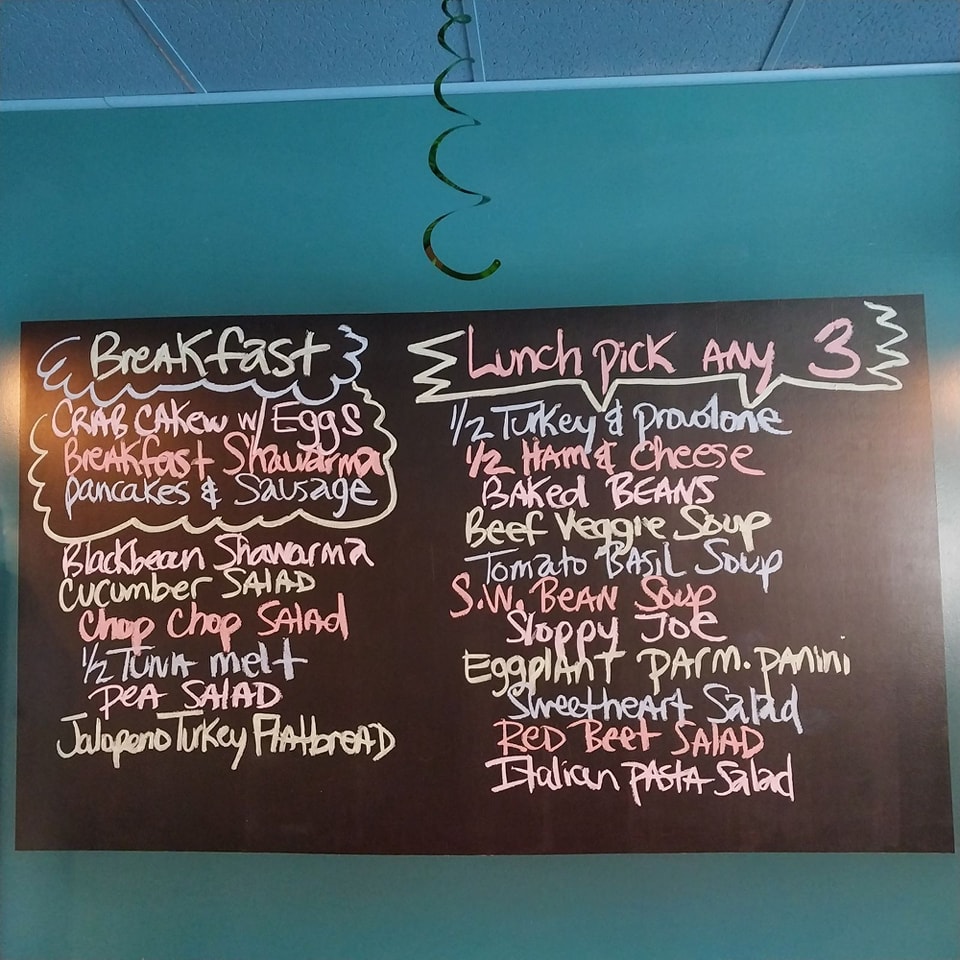 Breakfast
CRAB CAKEW w/ Eggs
Breakfast Shawarma
pancakes & Sausage
Blackbean Shawarma
Cucumber SALAD
Chop Chop SALAd
1/2 TUNA melt
PEA SALAD
Jalapeno Turkey FlAtbreAD
Lunch pick ANy 3
1/2 Turkey & provolone
1/2 HAM & Cheese
BAKed BEANS
Beef Veggie Soup
Tomato BASiL Soup
S.W. BEAN Soup
Sloppy JOE
EggplANT pArm. pANini
Sweetheart Salad
RED Beet SALAD
Italian pASTA Salad